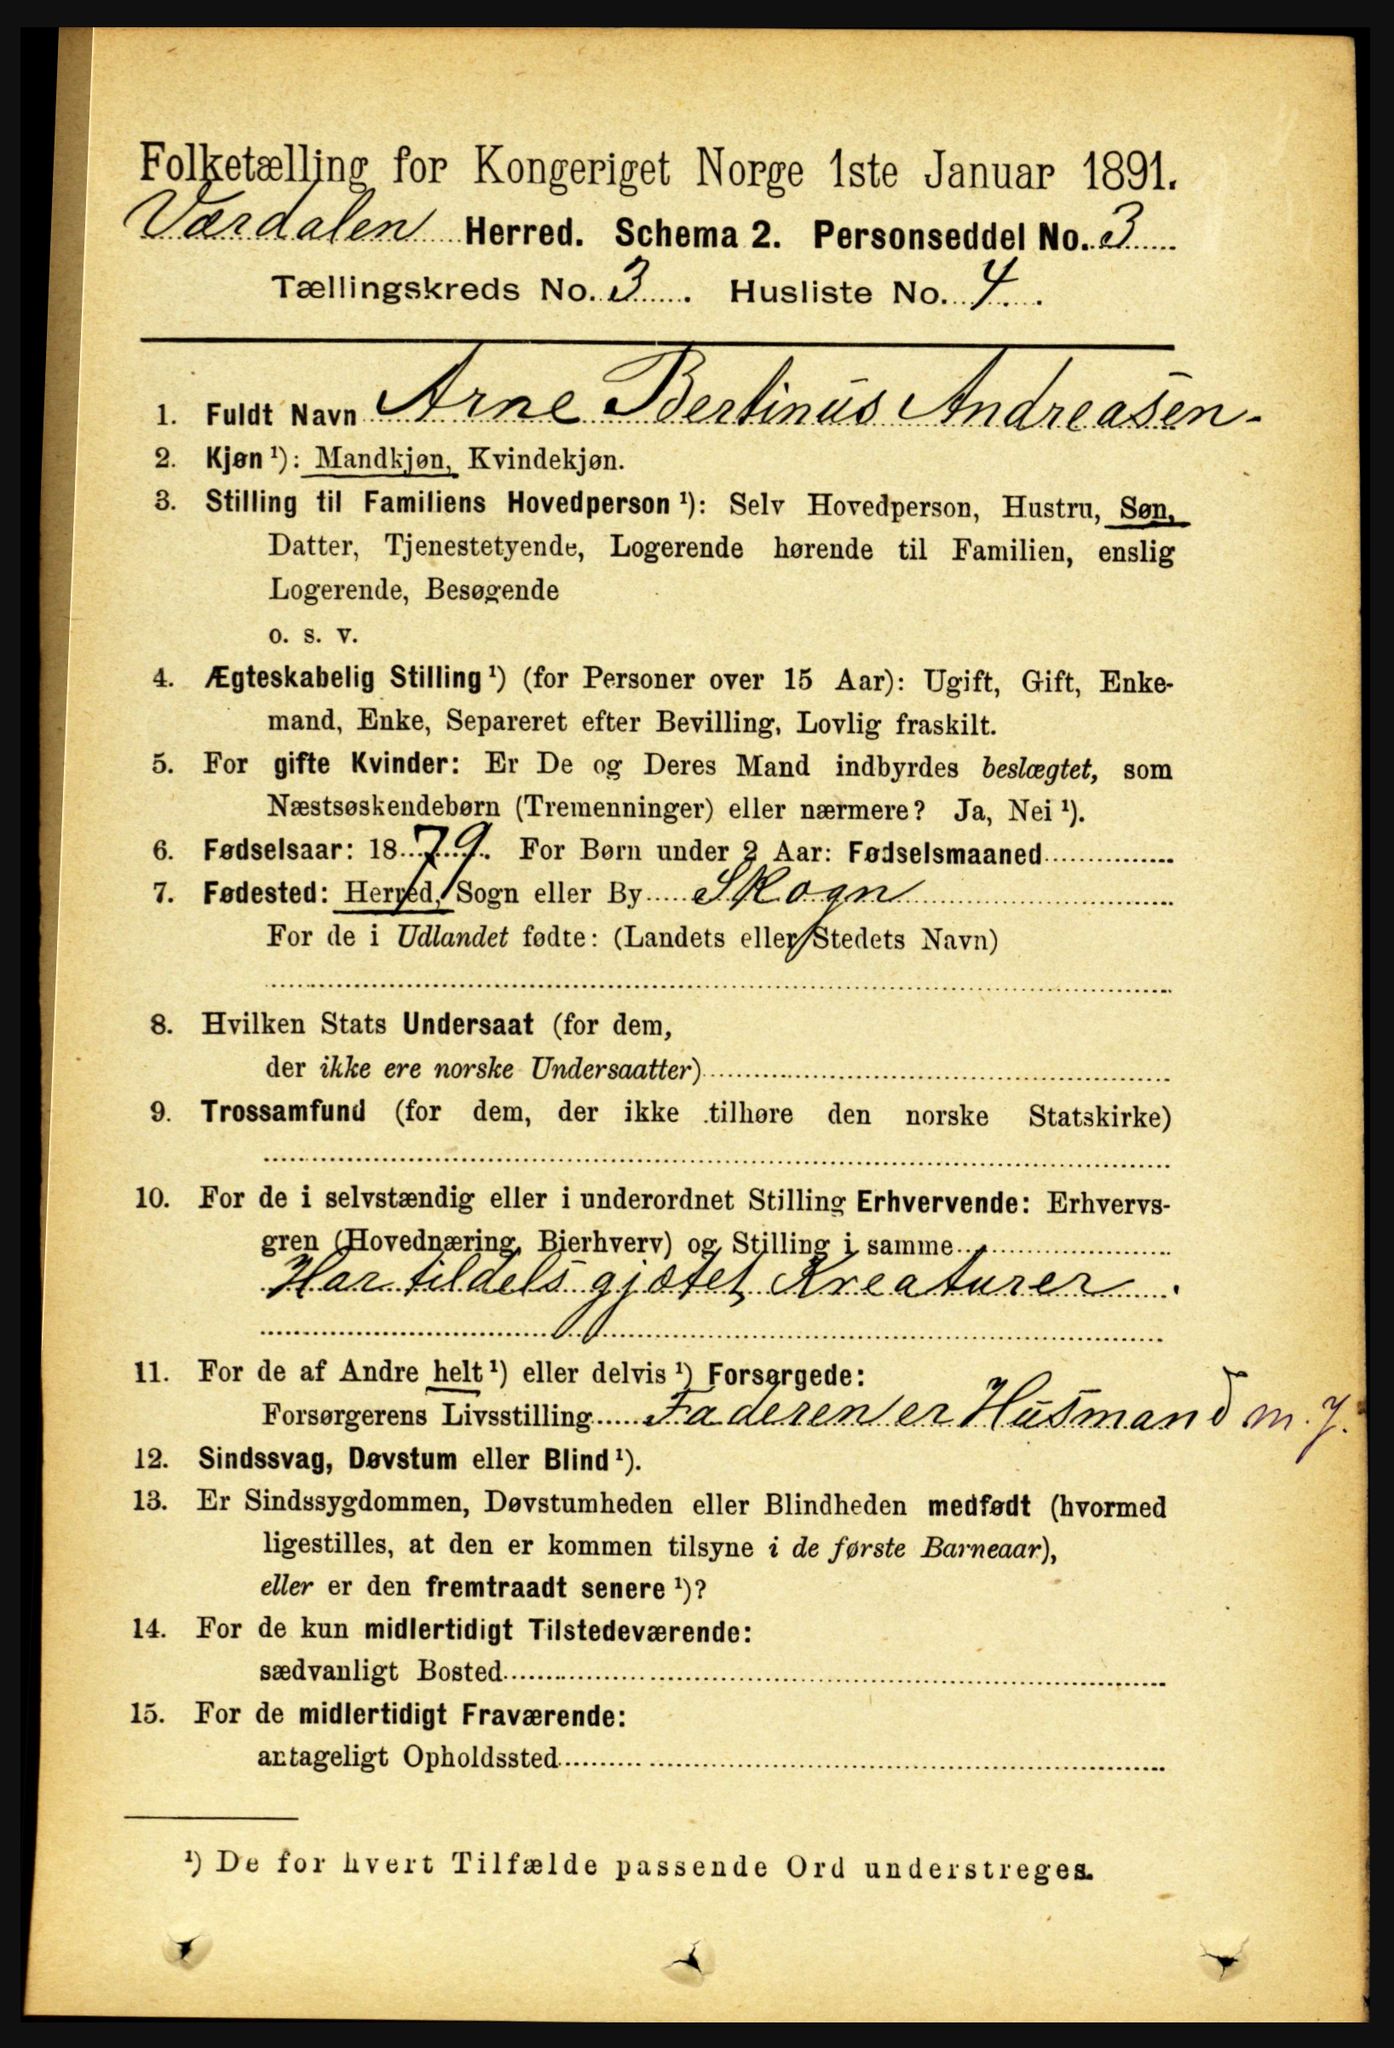 Folketælling for Kongeriget Norge 1ste Januar 1891.
Værdalen Herred. Schema 2. Personseddel No. 3
Tællingskreds No. 3 . Husliste No. 4 .
1. Fuldt Navn Arne Bertinus Andreasen.
2. Kjøn ¹): Mandkjøn, Kvindekjøn.
3. Stilling til Familiens Hovedperson ¹): Selv Hovedperson, Hustru, Søn,
Datter, Tjenestetyende, Logerende hørende til Familien, enslig
Logerende, Besøgende
o. s. v.
4. Ægteskabelig Stilling ¹) (for Personer over 15 Aar): Ugift, Gift, Enke-
mand, Enke, Separeret efter Bevilling, Lovlig fraskilt.
5. For gifte Kvinder: Er De og Deres Mand indbyrdes beslægtet, som
Næstsøskendebørn (Tremenninger) eller nærmere? Ja, Nei ¹).
6. Fødselsaar: 1879. For Børn under 2 Aar: Fødselsmaaned
7. Fødested: Herred, Sogn eller By Skogn
For de i Udlandet fødte: (Landets eller Stedets Navn)
8. Hvilken Stats Undersaat (for dem,
der ikke ere norske Undersaatter)
9. Trossamfund (for dem, der ikke tilhøre den norske Statskirke)
10. For de i selvstændig eller i underordnet Stilling Erhvervende: Erhvervs-
gren (Hovednæring, Bierhverv) og Stilling i samme
Har tildels gjætet Kreaturer .
11. For de af Andre helt ¹) eller delvis ¹) Forsørgede:
Forsørgerens Livsstilling Faderen er Husmand m. J.
12. Sindssvag, Døvstum eller Blind ¹).
13. Er Sindssygdommen, Døvstumheden eller Blindheden medfødt (hvormed
ligestilles, at den er kommen tilsyne i de første Barneaar),
eller er den fremtraadt senere ¹)?
14. For de kun midlertidigt Tilstedeværende:
sædvanligt Bosted
15. For de midlertidigt Fraværende:
antageligt Opholdssted
¹) De for hvert Tilfælde passende Ord understreges.